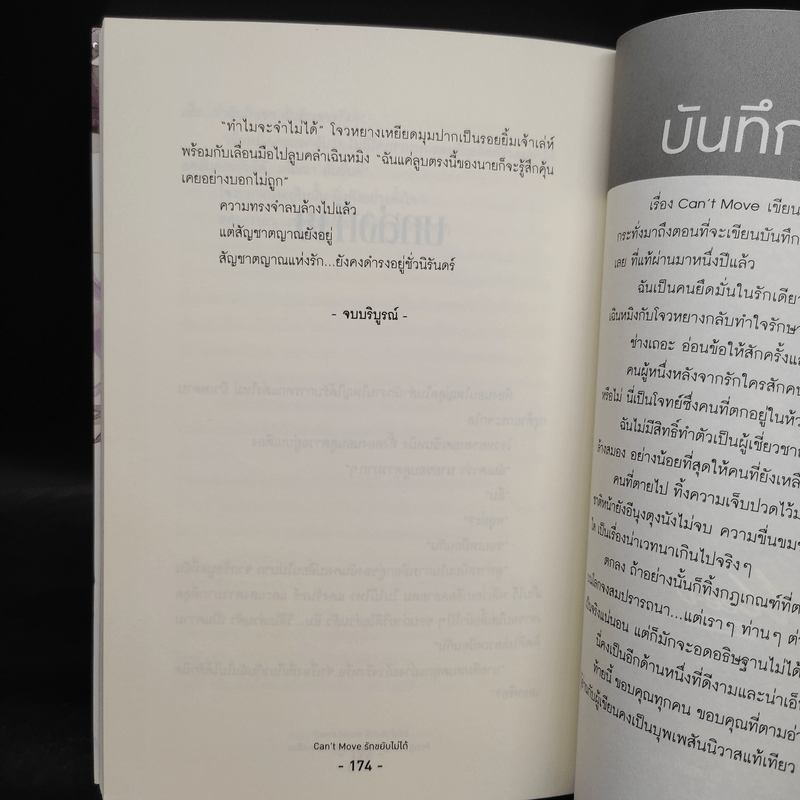 "ทำไมจะจำไม่ได้" โจวหยางเหยียดมุมปากเป็นรอยยิ้มเจ้าเล่ห์
พร้อมกับเลื่อนมือไปลูบคลำเฉินหมิง "ฉันแค่ลูบตรงนี้ของนายก็จะรู้สึกคุ้น
เคยอย่างบอกไม่ถูก"
ความทรงจำลบล้างไปแล้ว
แต่สัญชาตญาณยังอยู่
สัญชาตญาณแห่งรัก...ยังคงดำรงอยู่ชั่วนิรันดร์
- จบบริบูรณ์ -
Can't Move รักขยับไม่ได้
- 174 -
บันทึก
เรื่อง Can't Move เขียน
กระทั่งมาถึงตอนที่จะเขียนบันทึก
เลย ที่แท้ผ่านมาหนึ่งปีแล้ว
ฉันเป็นคนยึดมั่นในรักเดีย
เฉินหมิงกับโจวหยางกลับทำใจรักษา
ช่างเถอะ อ่อนข้อให้สักครั้ง
คนผู้หนึ่งหลังจากรักใครสักคน
หรือไม่ นี่เป็นโจทย์ซึ่งคนที่ตกอยู่ในห้ว
ฉันไม่มีสิทธิ์ทำตัวเป็นผู้เชี่ยวชา
ล้างสมอง อย่างน้อยที่สุดให้คนที่ยังเหลื
คนที่ตายไป ทิ้งความเจ็บปวดไว้
ชาติหน้ายังอีนุงตุงนังไม่จบ ความขื่นขม
ใด เป็นเรื่องน่าเวทนาเกินไปจริงๆ
ตกลง ถ้าอย่างนั้นก็ทิ้งกฎเกณฑ์ที่
จงสมปรารถนา...แต่เราๆ ท่านๆ
เป็นจริงแน่นอน แต่ก็มักจะอดอธิษฐานไม่ได้
นี่คงเป็นอีกด้านหนึ่งที่ดีงามและน่าเอ็
ท้ายนี้ ขอบคุณทุกคน ขอบคุณที่ตามอ่า
ผู้เขียนคงเป็นบุพเพสันนิวาสแท้เทียว